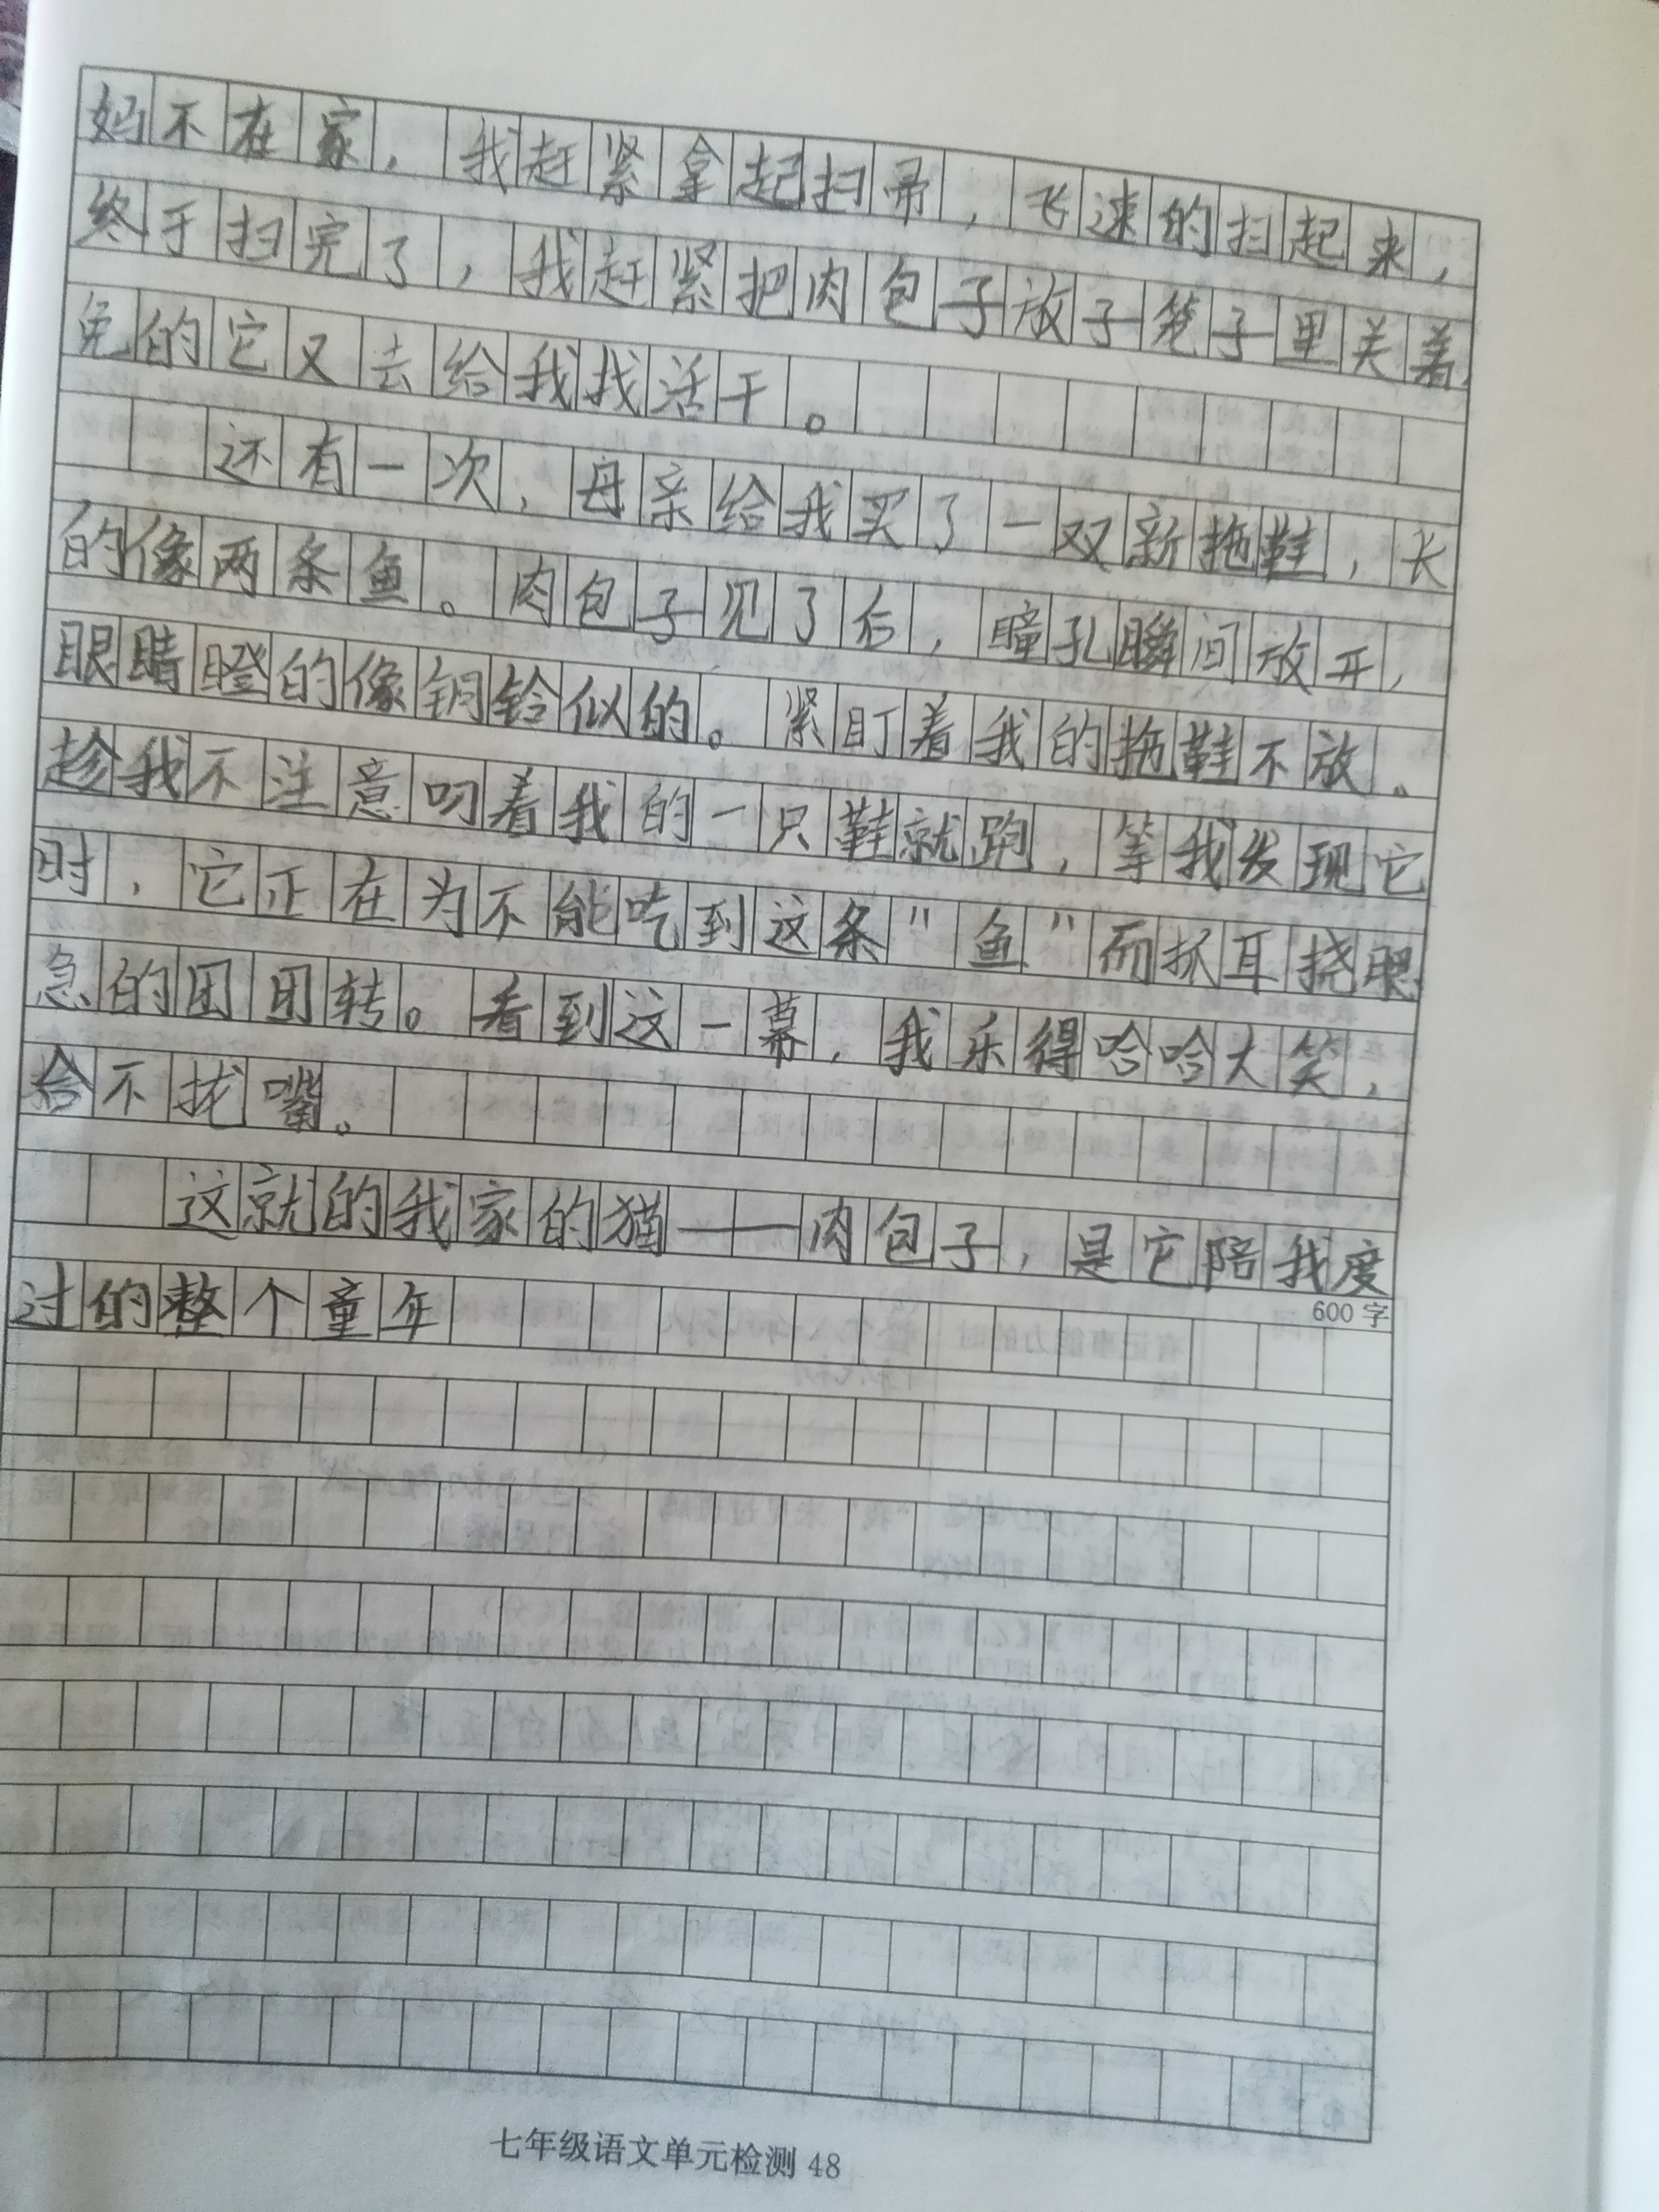 妈不在家，我赶紧拿起扫帚，飞速的扫起来，
终于扫完了，我赶紧把肉包子放于笼子里关着，
免的它又去给我找活干。
还有一次，母亲给我买了一双新拖鞋，长
的像两条鱼。肉包子见了后，瞳孔瞬间放开，
眼睛瞪的像铜铃似的。紧盯着我的拖鞋不放。
趁我不注意叼着我的一只鞋就跑，等我发现它
时，它正在为不能吃到这条"鱼"而抓耳挠腮
急的团团转。看到这一幕，我乐得哈哈大笑，
合不拢嘴。
这就的我家的猫——肉包子，是它陪我度
过的整个童年
600字
七年级语文单元检测 48